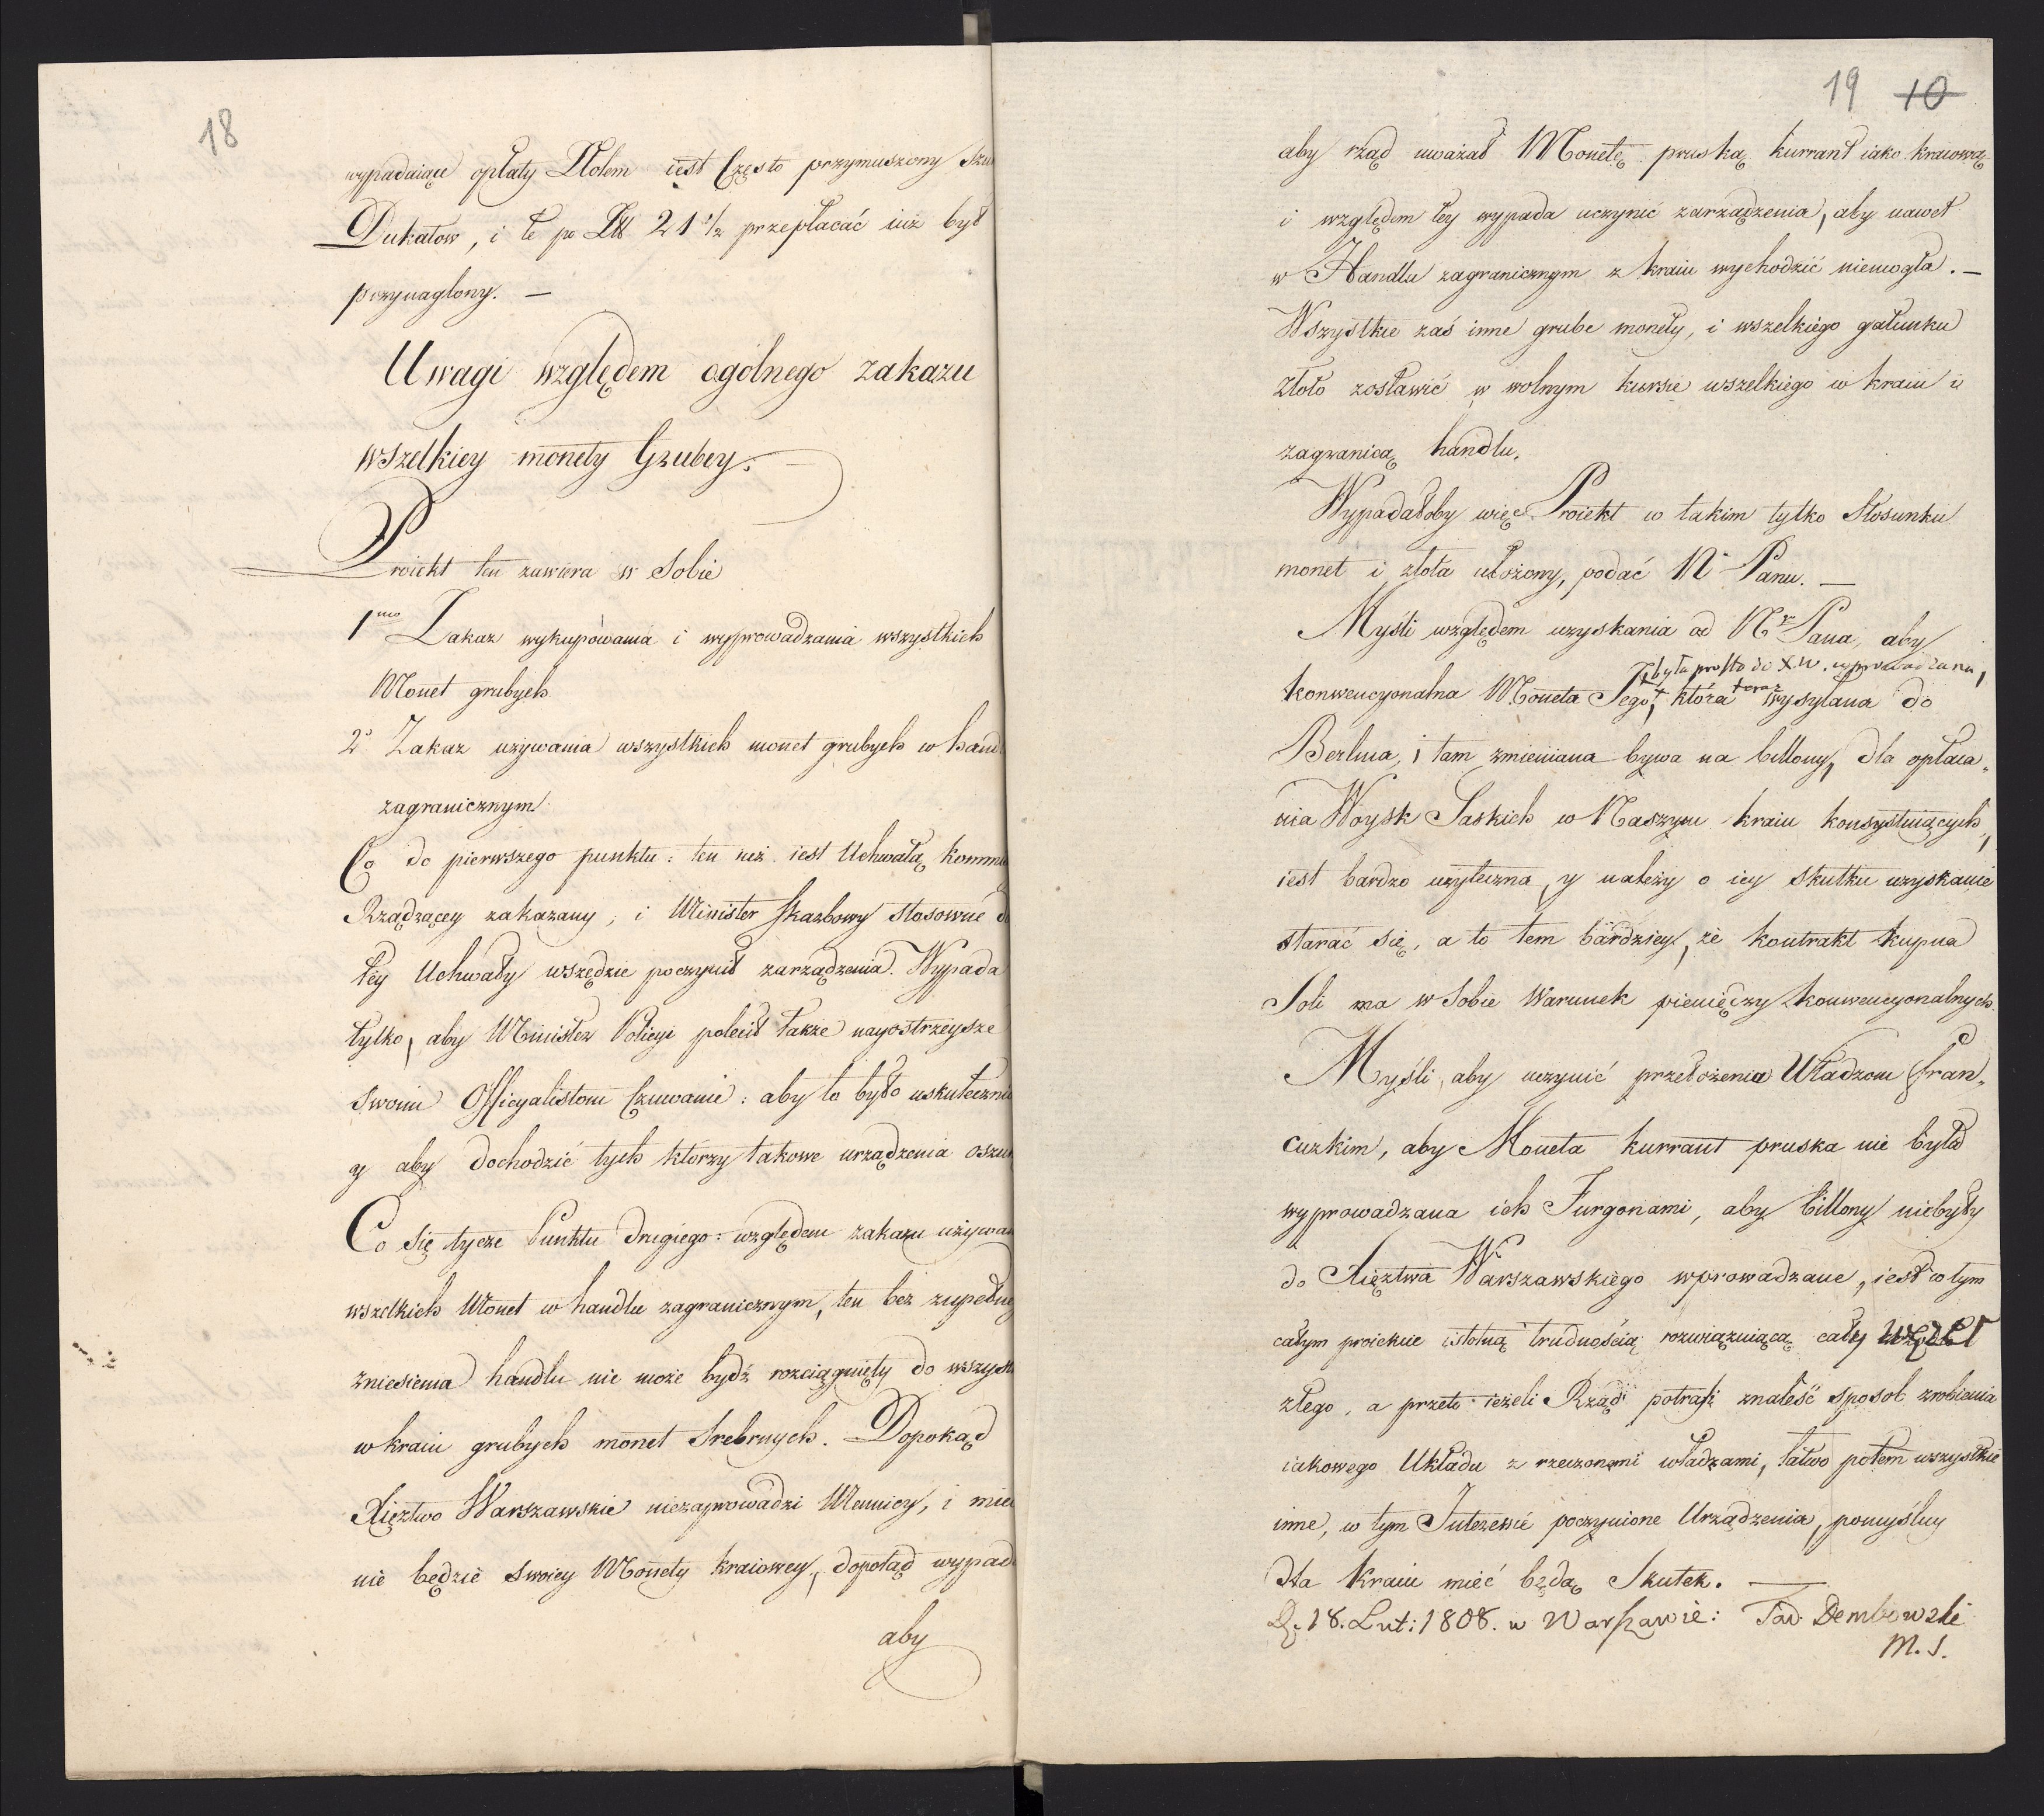 18
wypadaiące opłaty Złotem iest Często przymuszony szu
Dukatow, i te po Zll 21 1/2 przepłacać iuż był
przynaglony. —
Uwagi względem ogólnego zakazu
wszelkiey monety Grubey. —
Proiekt ten zawiera w Sobie
1mo Zakaz wykupówania i wyprowadzania wszystkich
Monet grubych
2o Zakaz używania wszystkich monet grubych w hand
zagranicznym
Co do pierwszego punktu: ten iuż iest Uchwałą Kommi
Rządzącey zakazany, i Minister Skarbowy stosownie d
tey Uchwały wszędzie poczynił zarządzenia. Wypada
tylko, aby Minister Policyi polecił także nayostrzeysze
swoim Officyalistom Czuwanie: aby to było uskuteczni
y aby dochodzić tych którzy takowe urządzenia oszu
Co się tycze Punktu drugiego: względem zakazu używan
wszelkich Monet w handlu zagranicznym, ten bez zupełne
zniesienia handlu nie może bydź rozciągnięty do wszyst
w kraiu grubych monet Srebrnych. Dopokąd
Xięztwo Warszawskie niezaprowadzi Mennicy, i mie
nie będzie swoiey Monety kraiowey, dopotąd wypad
aby
19 10
aby rząd uważał Monetę pruską kurrant iako kraiową
i względem tey wypada uczynić zarządzenia, aby nawet
w Handlu zagranicznym z kraiu wychodzić niemogła. —
Wszystkie zaś inne grube monety, i wszelkiego gatunku
złoto zostawić w wolnym kursie wszelkiego w kraiu i
zagranicą handlu.
Wypadałoby więc Proiekt w takim tylko Stosunku
monet i złota ułożony, podać N. Panu. —
Myśli względem uzyskania od Nr Pana, aby
była prosto do X. W. wprowadzana,
konwencyonalna Moneta Jego, która teraz wysyłana do
Berlina, i tam zmieniana bywa na billony, dla opłaca„
nia Woysk Saskich w Naszym kraiu konsystuiących,
iest bardzo użyteczna, y należy o iey skutku uzyskanie
starać się, a to tem bardziey, że kontrakt kupna
Soli ma w Sobie Warunek pieniędzy konwencyonalnych.
Myśli, aby uczynić przełożenia Władzom fran„
cuzkim, aby Moneta kurrant pruska nie była
wyprowadzana ich Furgonami, aby billony niebyły
do Xięztwa Warszawskiego wprowadzane, iest w tym
całym proiekcie istotną trudnością rozwiązuiącą cały węzeł
złego, a przeto ieżeli Rząd potrafi znaleść sposob zrobienia
iakowego Układu z rzeczonemi władzami, łatwo potem wszystkie
inne, w tym Interessie poczynione Urządzenia, pomyślny
dla Kraiu mieć będą Skutek. —
D. 18. Lut: 1808. w Warszawie: Tad Dembowski
M. S.